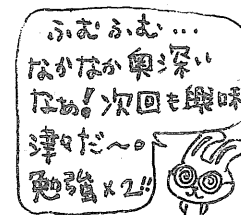 ふむふむ…
なかなか奥深い
なぁ!次回も興味
津々だ〜。
勉強×2!!